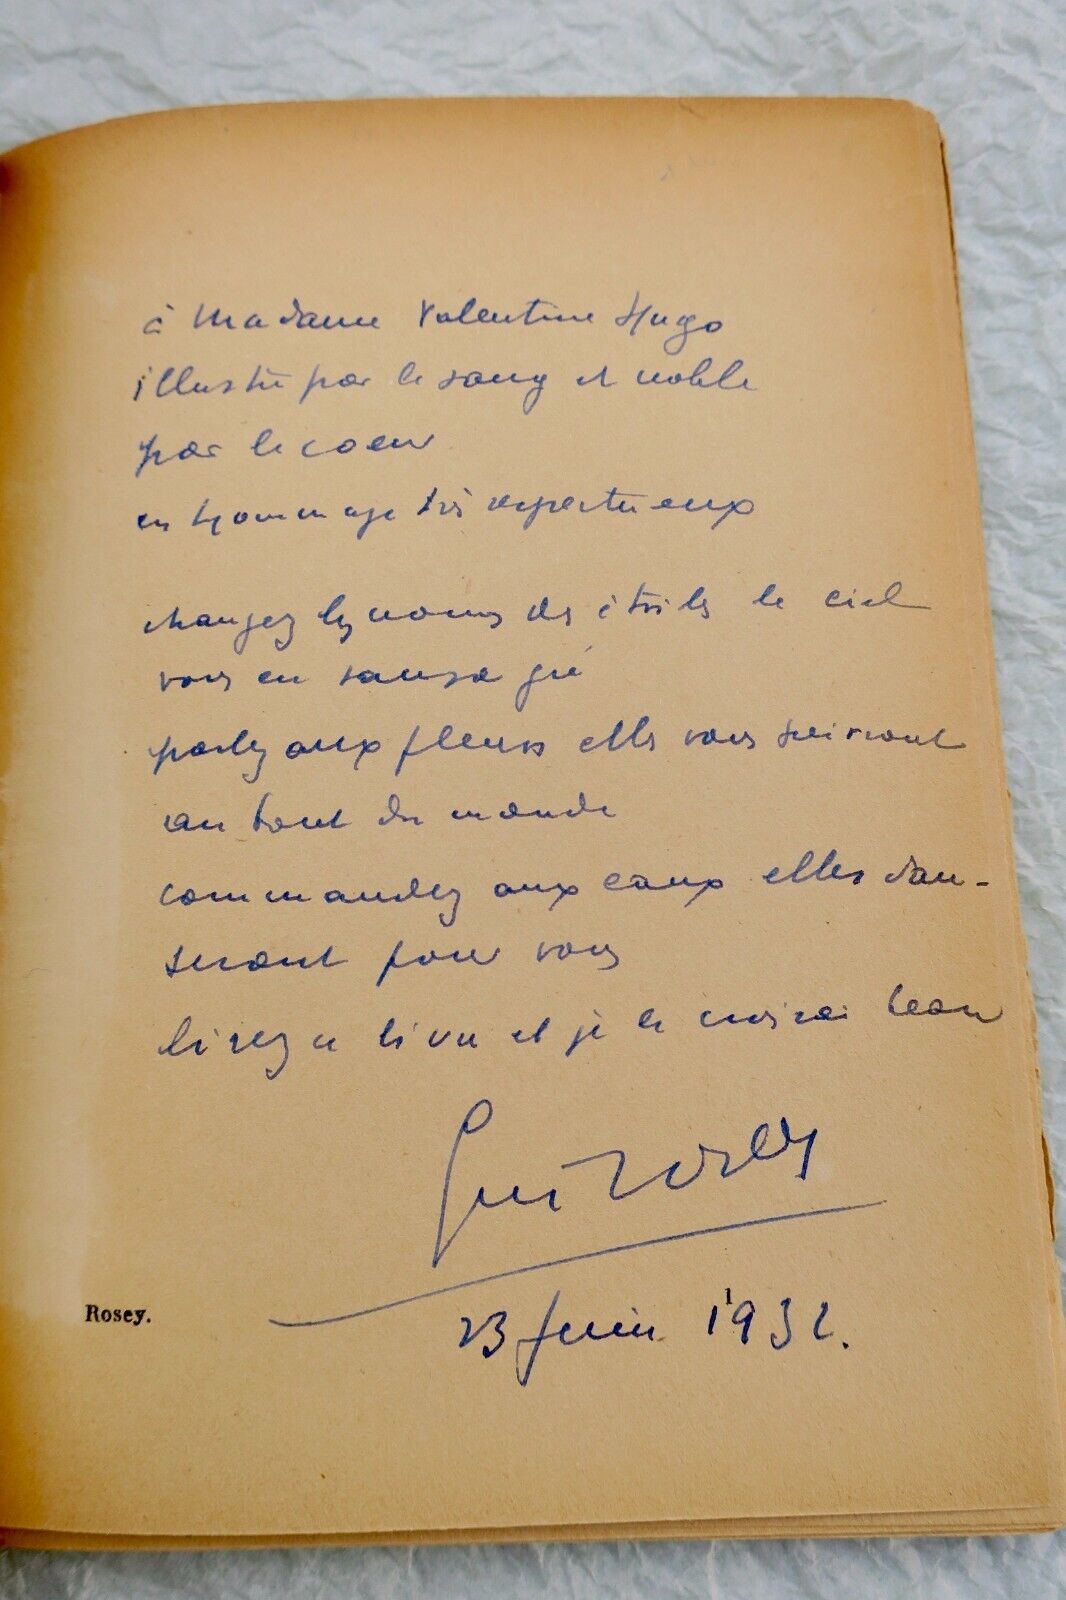 à Madame Valentine Hugo
illustre par le sang et noble
par le coeur
en hommage très respectueux
changez les noms des étoiles le ciel
vous en saura gré
parlez aux fleurs elles vous suivront
au bout du monde
commandez aux eaux elles dan-
seront pour vous
lisez ce livre et je le croirai beau
Gui Rosey
Rosey.
1
23 Juin 1932.